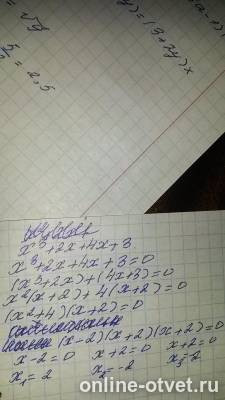 = √9
5/2 = 2,5
y) = (3+7y)x
x³+2x+4x+3
x³+2x+4x+3=0
(x³+2x)+(4x+3)=0
x²(x+2)+4(x+2)=0
(x²+4)(x+2)=0
(x-2)(x+2)(x+2)=0
x-2=0 x+2=0 x+2=0
x₁=2 x₂=-2 x₃=-2
online-otvet.ru